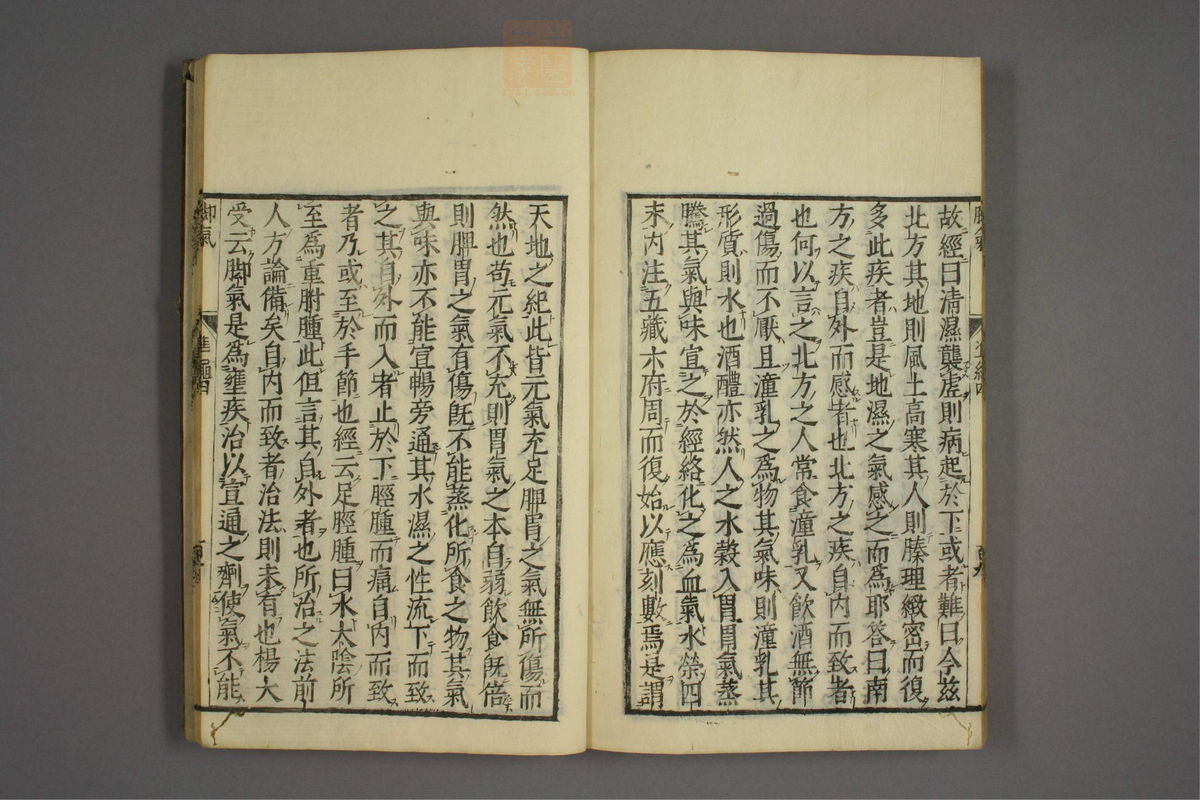 故經曰清濕襲虛則病起於下或者難曰今茲
北方其地則風土高寒其人則腠理緻密而復
多此疾者豈是地濕之氣感之而爲耶答曰南
方之疾自外而感者也北方之疾自內而致者
也何以言之北方之人常食潼乳又飲酒無節
過傷而不厭且潼乳之爲物其氣味則潼乳其
形質則水也酒醴亦然人之水穀入胃胃氣蒸
騰其氣與味宣之於經絡化之爲血氣水榮四
末內注五藏六府周而復始以應刻數焉是謂
天地之紀此皆元氣充足脾胃之氣無所傷而
然也苟元氣不充則胃氣之本自弱飲食旣倍
則脾胃之氣有傷旣不能蒸化所食之物其氣
與味亦不能宣暢旁通其水濕之性流下而致
之其自外而入者止於下脛腫而痛自內而致
者乃或至於手節也經云足脛腫曰水太陰所
至爲重胕腫此但言其自外者也所治之法前
人方論備矣自內而致者治法則未有也楊大
受云脚氣是爲壅疾治以宣通之劑使氣不能
脚氣